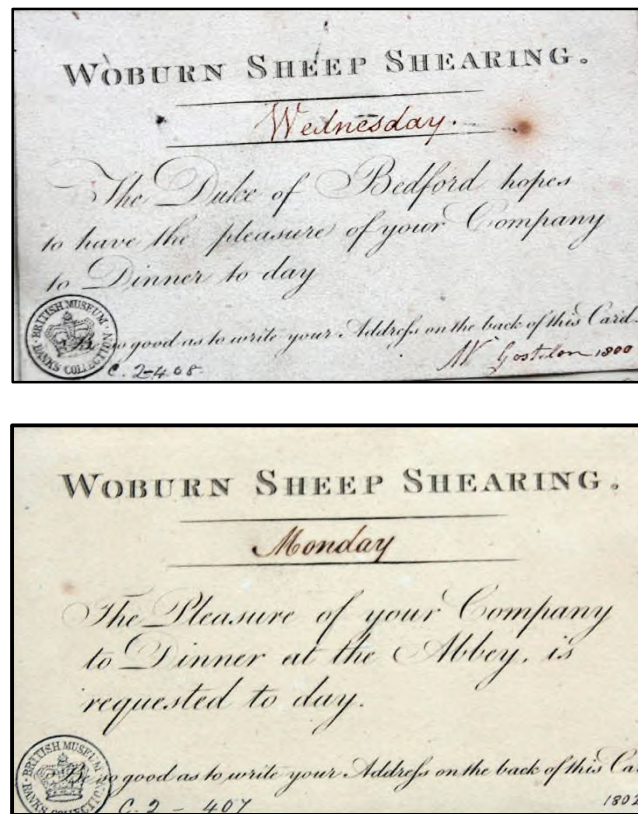 WOBURN SHEEP SHEARING.
Wednesday.
The Duke of Bedford hopes
to have the pleasure of your Company
to Dinner to day
BRITISH MUSEUM
BANKS COLLECTION
Be so good as to write your Addreſs on the back of this Card.
C. 2-408
1800
WOBURN SHEEP SHEARING.
Monday
The Pleasure of your Company
to Dinner at the Abbey, is
requested to day.
BRITISH MUSEUM
BANKS COLLECTION
Be so good as to write your Addreſs on the back of this Ca
C. 2 - 407
1802